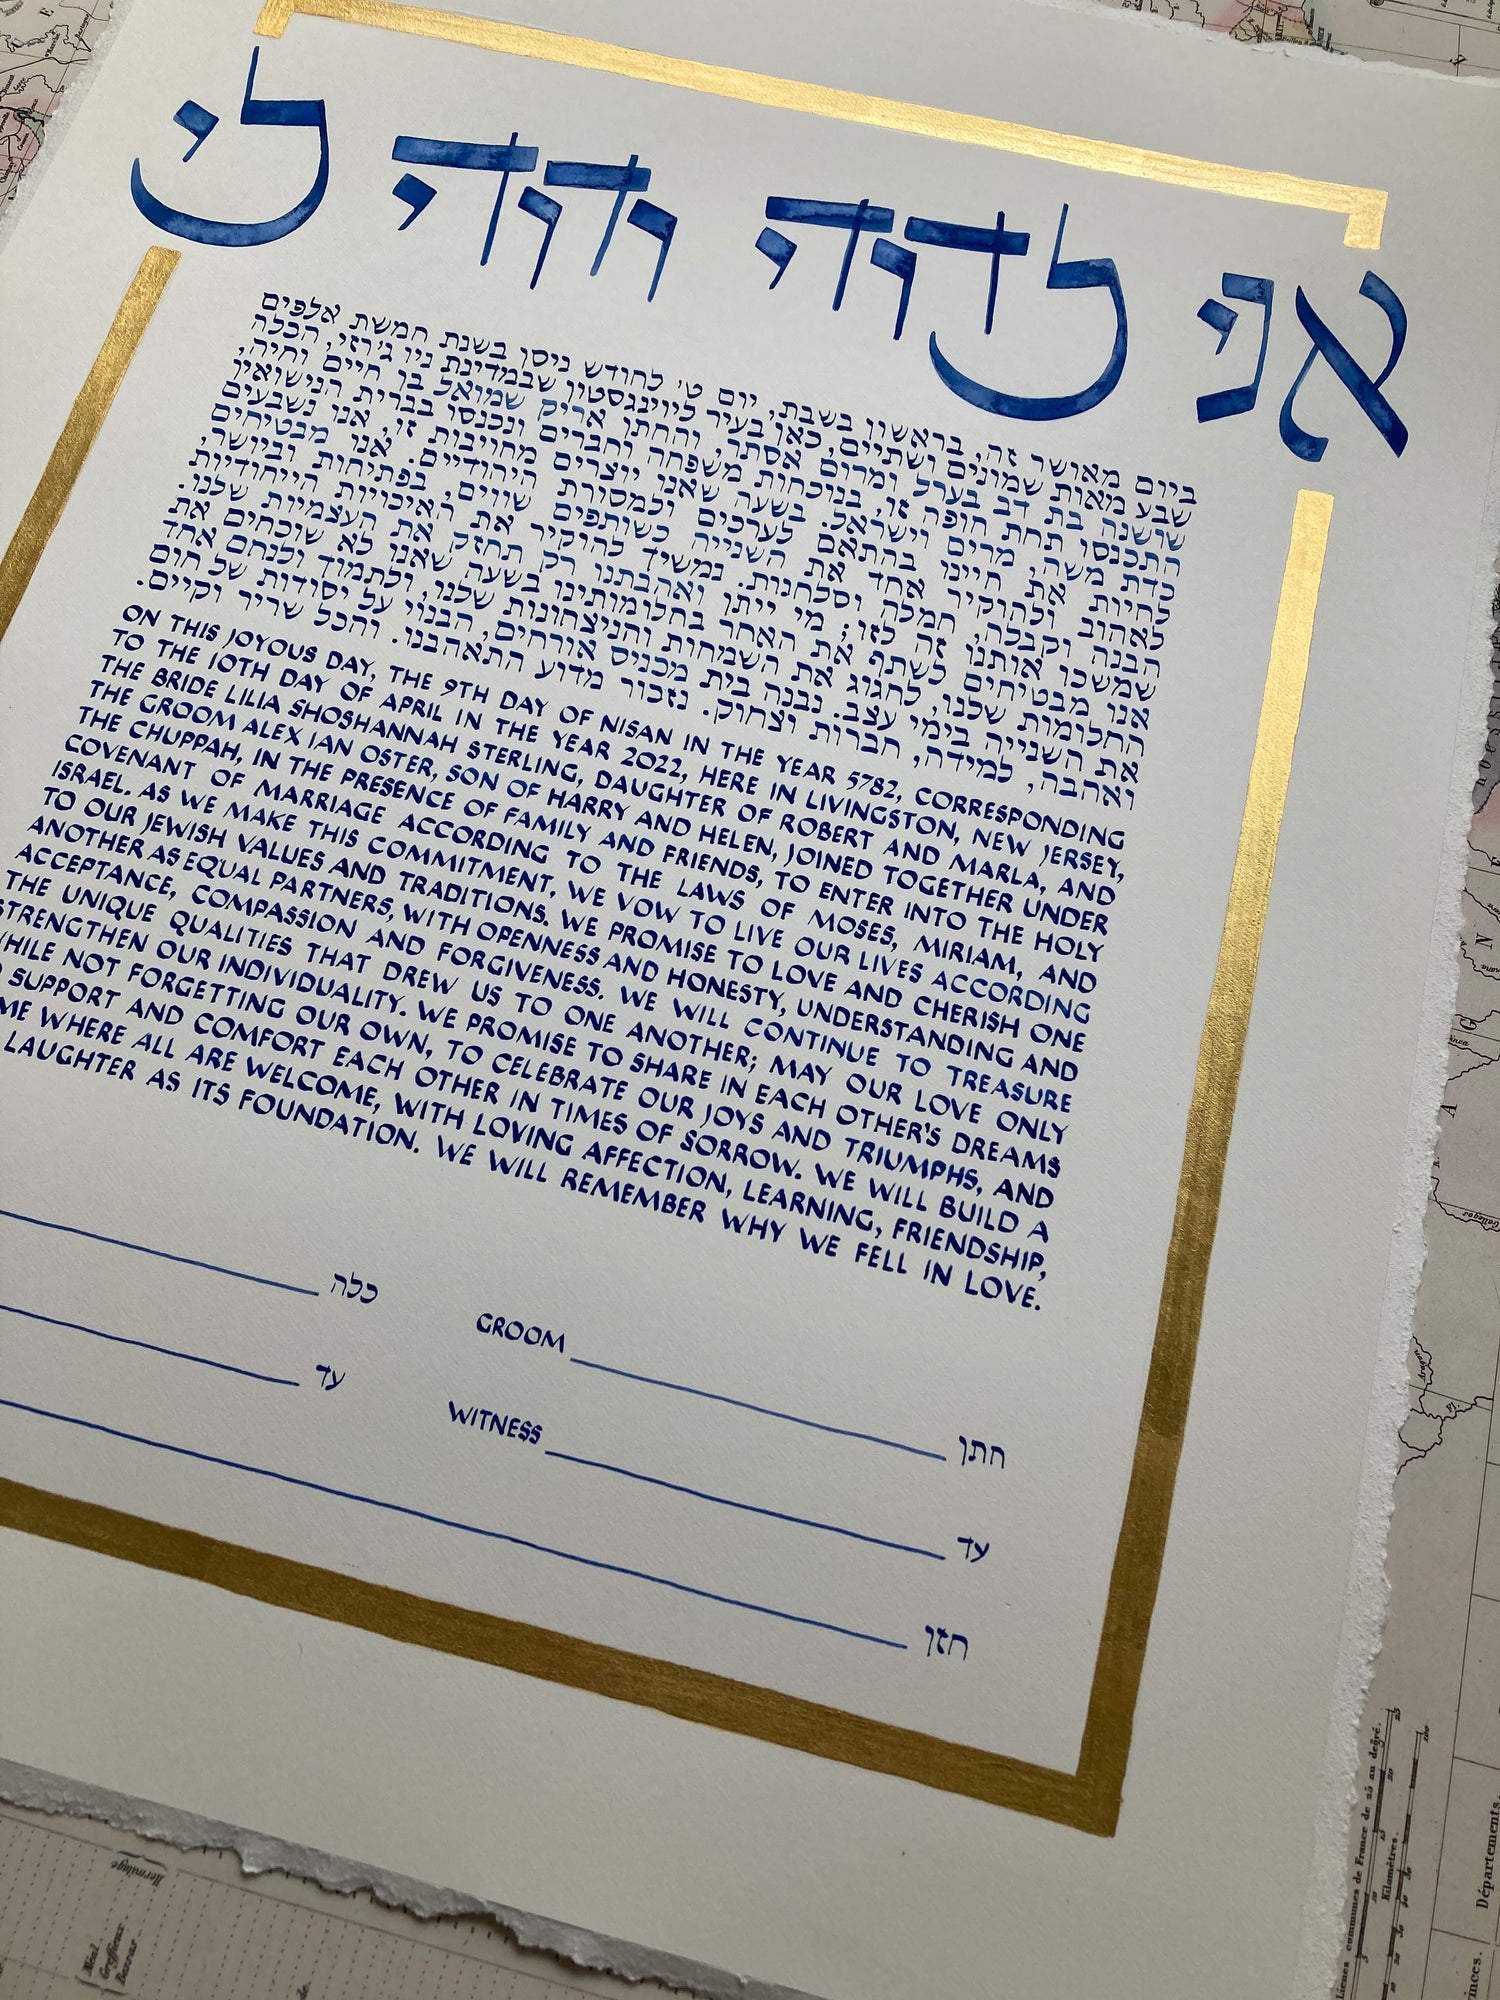 אני לדודי ודודי לי
ביום מאושר זה, בראשון בשבת, יום ט׳ לחודש ניסן בשנת חמשת אלפים
שבע מאות שמונים ושתיים, כאן בעיר ליוינגסטון שבמדינת ניו ג׳רזי, הכלה
שושנה בת דב בערל ומרום אסתר, והחתן אריק שמואל בן חיים וחיה,
התכנסו תחת חופה זו, בנוכחות משפחה וחברים ונכנסו בברית הנישואין
כדת משה, מרים וישראל. בשעה שאנו יוצרים מחוייבות זו, אנו נשבעים
לחיות את חיינו בהתאם לערכים ולמסורת היהודיים. אנו מבטיחים
לאהוב ולהוקיר אחד את השנייה כשותפים שווים, בפתיחות וביושר,
הבנה וקבלה, חמלה וסלחנות. נמשיך להוקיר את האיכויות הייחודיות
שמשכו אותנו זה לזו; מי ייתן ואהבתנו רק תחזק את העצמיות שלנו.
אנו מבטיחים לשתף את האחר בחלומותינו בשעה שאנו לא שוכחים את
החלומות שלנו, לחגוג את השמחות והניצחונות שלנו, ולתמוך ולנחם אחד
את השנייה בימי עצב. נבנה בית מכניס אורחים, הבנוי על יסודות של חום
ואהבה, למידה, חברות וצחוק. נזכור מדוע התאהבנו. והכל שריר וקיים.
ON THIS JOYOUS DAY, THE 9TH DAY OF NISAN IN THE YEAR 5782, CORRESPONDING
TO THE 10TH DAY OF APRIL IN THE YEAR 2022, HERE IN LIVINGSTON, NEW JERSEY,
THE BRIDE LILIA SHOSHANNAH STERLING, DAUGHTER OF ROBERT AND MARLA, AND
THE GROOM ALEX IAN OSTER, SON OF HARRY AND HELEN, JOINED TOGETHER UNDER
THE CHUPPAH, IN THE PRESENCE OF FAMILY AND FRIENDS, TO ENTER INTO THE HOLY
COVENANT OF MARRIAGE ACCORDING TO THE LAWS OF MOSES, MIRIAM, AND
ISRAEL. AS WE MAKE THIS COMMITMENT, WE VOW TO LIVE OUR LIVES ACCORDING
TO OUR JEWISH VALUES AND TRADITIONS. WE PROMISE TO LOVE AND CHERISH ONE
ANOTHER AS EQUAL PARTNERS, WITH OPENNESS AND HONESTY, UNDERSTANDING AND
ACCEPTANCE, COMPASSION AND FORGIVENESS. WE WILL CONTINUE TO TREASURE
THE UNIQUE QUALITIES THAT DREW US TO ONE ANOTHER; MAY OUR LOVE ONLY
STRENGTHEN OUR INDIVIDUALITY. WE PROMISE TO SHARE IN EACH OTHER'S DREAMS
WHILE NOT FORGETTING OUR OWN, TO CELEBRATE OUR JOYS AND TRIUMPHS, AND
SUPPORT AND COMFORT EACH OTHER IN TIMES OF SORROW. WE WILL BUILD A
WHERE ALL ARE WELCOME, WITH LOVING AFFECTION, LEARNING, FRIENDSHIP,
LAUGHTER AS ITS FOUNDATION. WE WILL REMEMBER WHY WE FELL IN LOVE.
כלה
GROOM חתן
עד
WITNESS עד
חזן
Départements.
Kilomètres.
Lieues communes de France de 25 au degré.
Hermitage